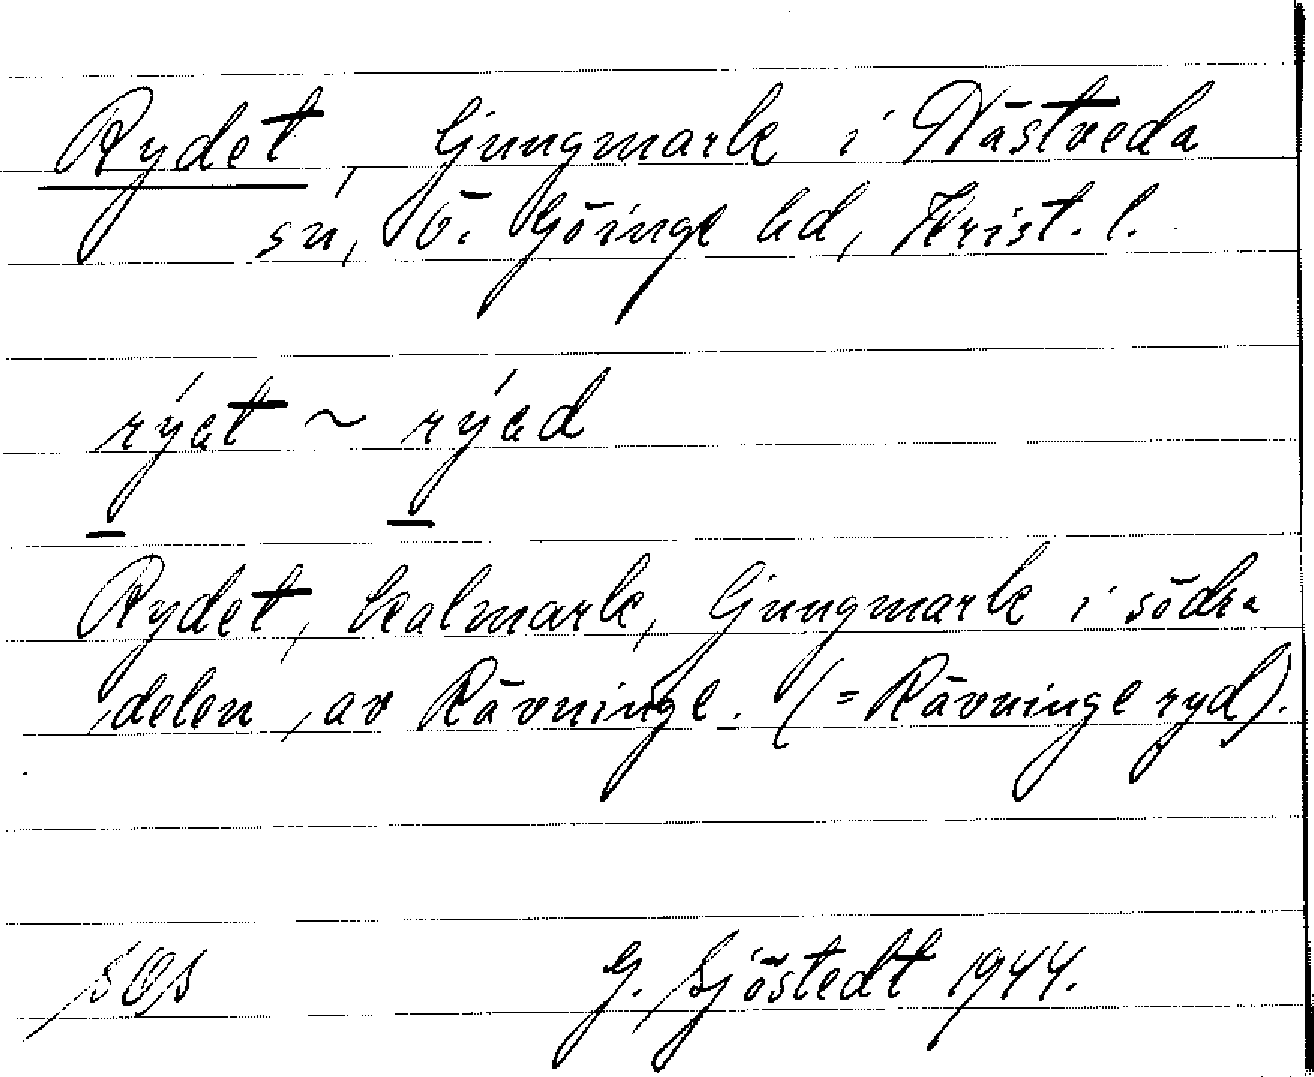 Rydet, ljungmark i Nästveda
sn, Ö. Göinge hd, Krist. l.
rýat ~ rýad
Rydet, kalmark, ljungmark i södra
delen, av Rävninge. (= Rävninge ryd).
G. Sjöstedt 1944.